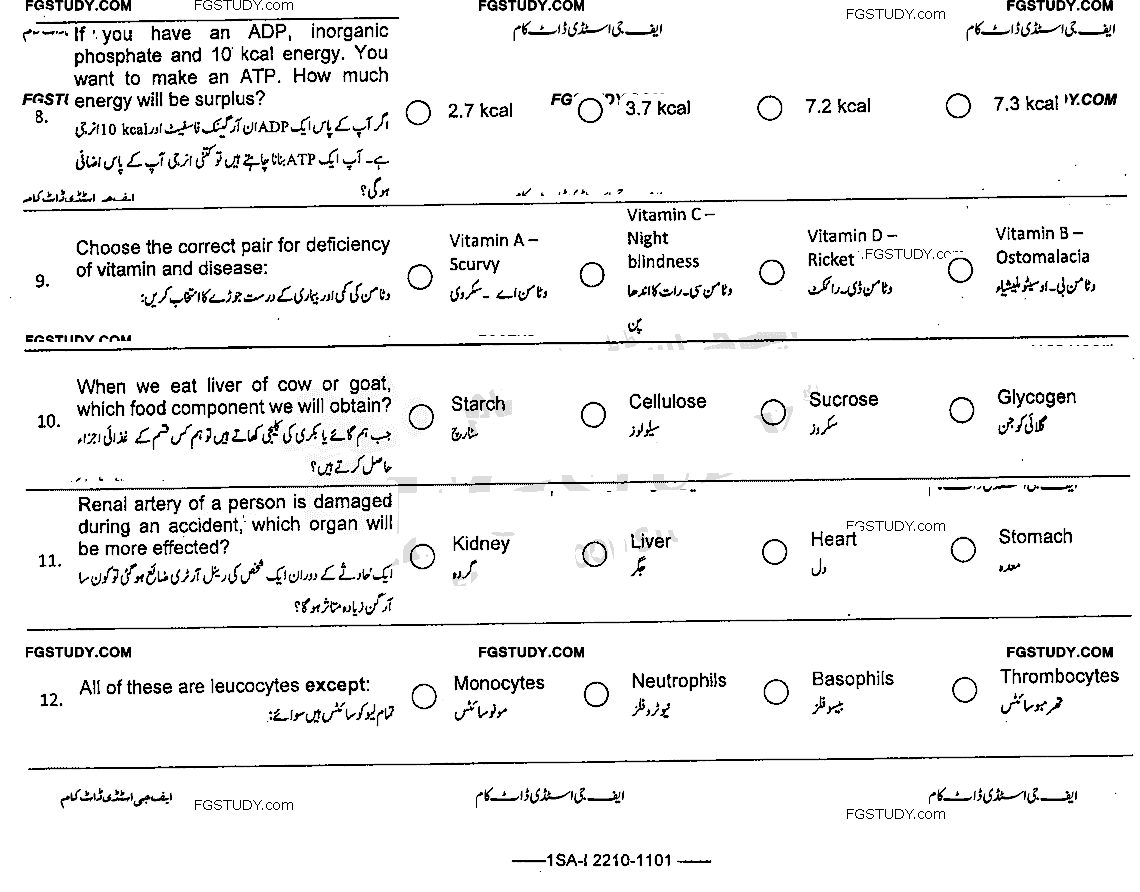 FGSTUDY.COM FGSTUDY.com FGSTUDY.COM FGSTUDY.com FGSTUDY.COM
ایف جی اسٹڈی ڈاٹ کام ایف جی اسٹڈی ڈاٹ کام
8. If you have an ADP, inorganic
phosphate and 10 kcal energy. You
want to make an ATP. How much
energy will be surplus?
اگر آپ کے پاس ایک ADP ان آرگینک فاسفیٹ اور 10 kcal انرجی
ہے۔ آپ ایک ATP بنانا چاہتے ہیں تو کتنی انرجی آپ کے پاس اضافی
ہوگی؟
2.7 kcal
3.7 kcal
7.2 kcal
7.3 kcal
9. Choose the correct pair for deficiency
of vitamin and disease:
وٹامن کی کمی اور بیماری کے درست جوڑے کا انتخاب کریں:
Vitamin A –
Scurvy
وٹامن اے ۔ سکروی
Vitamin C –
Night
blindness
وٹامن سی۔ رات کا اندھا
پن
Vitamin D –
Ricket
FGSTUDY.com
وٹامن ڈی۔ رائکٹ
Vitamin B –
Ostomalacia
وٹامن بی۔ اوسیٹو ملیشیاء
FGSTUDY.COM
10. When we eat liver of cow or goat,
which food component we will obtain?
جب ہم گائے یا بکری کی کلیجی کھاتے ہیں تو ہم کس قسم کے غذائی اجزاء
حاصل کرتے ہیں؟
Starch
سٹارچ
Cellulose
سیلولوز
Sucrose
سکروز
Glycogen
گلائی کوجن
11. Renal artery of a person is damaged
during an accident, which organ will
be more effected?
ایک حادثے کے دوران ایک شخص کی رینل آرٹری ضائع ہو گئی تو کون سا
آرگن زیادہ متاثر ہوگا؟
Kidney
گردہ
Liver
جگر
FGSTUDY.com
Heart
دل
Stomach
معدہ
FGSTUDY.COM FGSTUDY.COM FGSTUDY.COM
12. All of these are leucocytes except:
تمام لیوکوسائٹس ہیں سوائے:
Monocytes
مونوسائٹس
Neutrophils
نیوٹروفلز
Basophils
بیسوفلز
Thrombocytes
تھرمبوسائٹس
ایف جی اسٹڈی ڈاٹ کام FGSTUDY.com ایف جی اسٹڈی ڈاٹ کام ایف جی اسٹڈی ڈاٹ کام
FGSTUDY.com
1SA-I 2210-1101